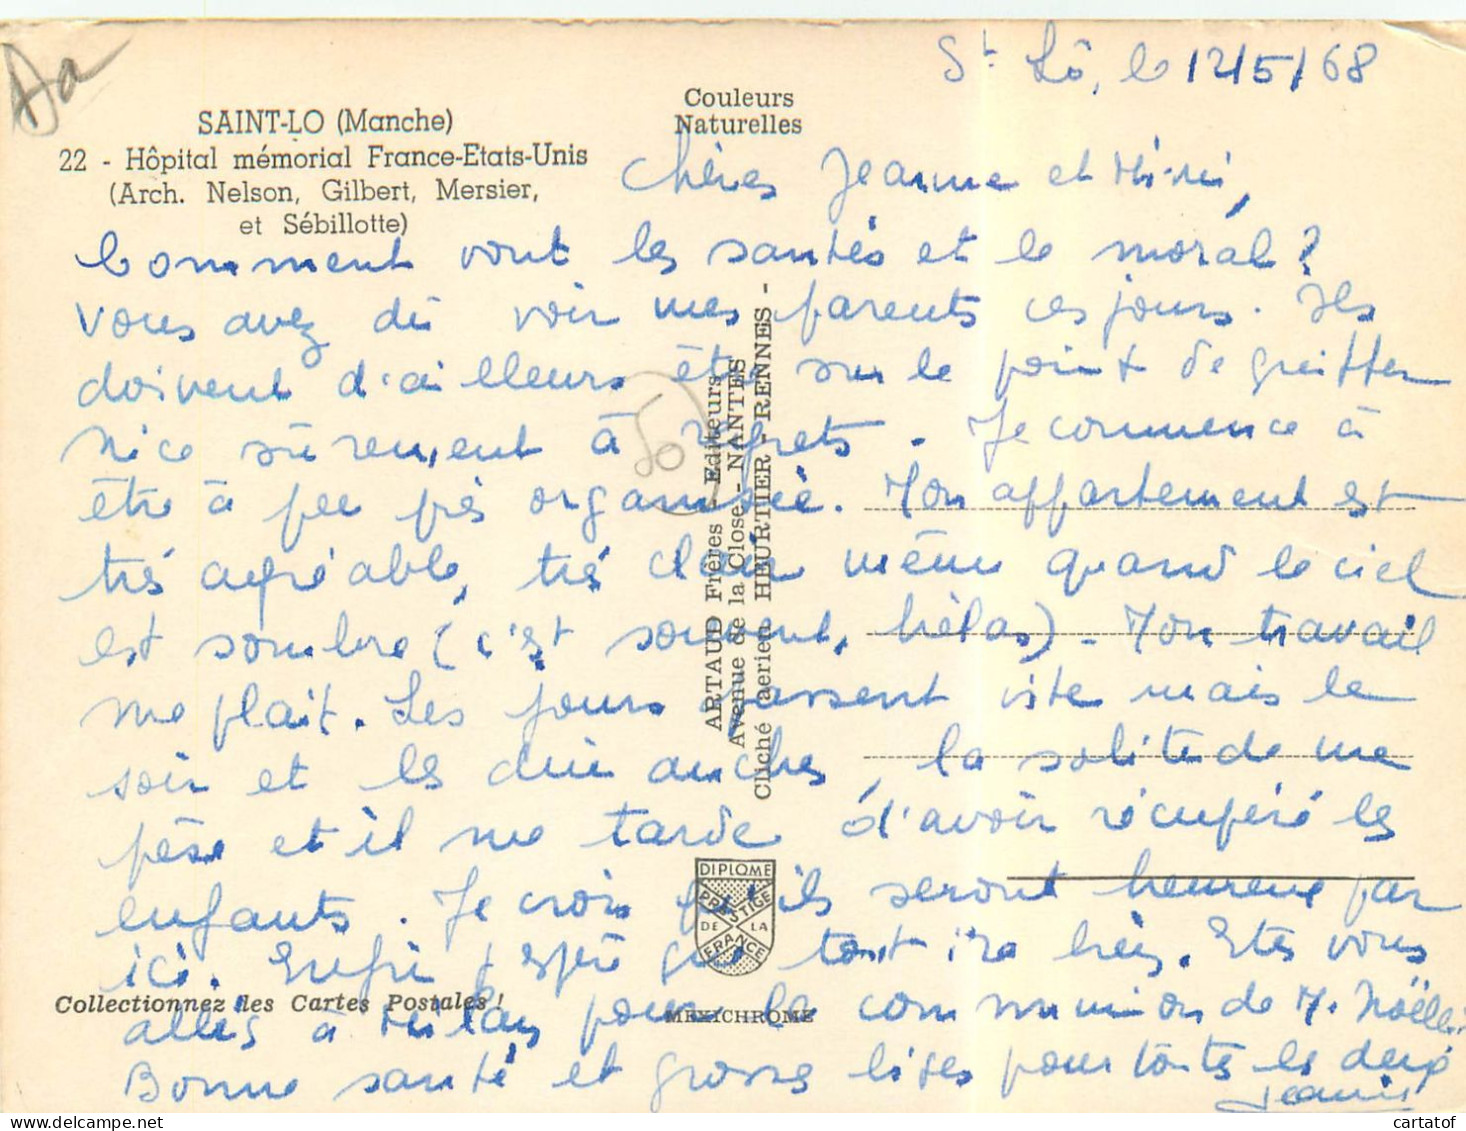 Aa
St Lô, le 12/5/68
SAINT-LO (Manche)
22 - Hôpital mémorial France-Etats-Unis
(Arch. Nelson, Gilbert, Mersier,
et Sébillotte)
Couleurs
Naturelles
Chères Jeanne et Mimi,
Comment vont les santés et le moral?
Vous avez dû voir mes parents ces jours. Ils
doivent d'ailleurs être sur le point de quitter
Nice sûrement à regrets. Je commence à
être à peu près organisée. Mon appartement est
très agréable, très clair même quand le ciel
est sombre (c'est souvent, hélas) - Mon travail
me plait. Les jours passent vite mais le
soir et les dimanches, la solitude me
pèse et il me tarde d'avoir récupéré les
enfants. Je crois qu'ils seront heureux par
ici. Enfin j'espère que tout ira bien. Etes vous
allés à Milan pour la communion de M. Noëlle.
Bonne santé et grosses bises pour toutes les deux
50
ARTAUD Frères - Editeurs
Avenue de la Close - NANTES
Cliché aerien HEURTIER - RENNES -
DIPLOME
PRESTIGE
DE LA
FRANCE
Collectionnez les Cartes Postales !
MEXICHROME
cartatof